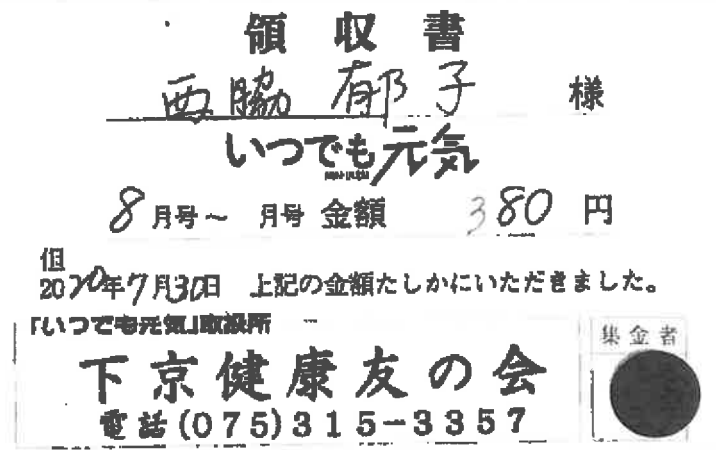 領収書
西脇 郁子 様
いつでも元気
8月号～ 月号 金額 380円
但
2020年7月30日 上記の金額たしかにいただきました。
「いつでも元気」取扱所
集金者
下京健康友の会
電話(075)315-3357